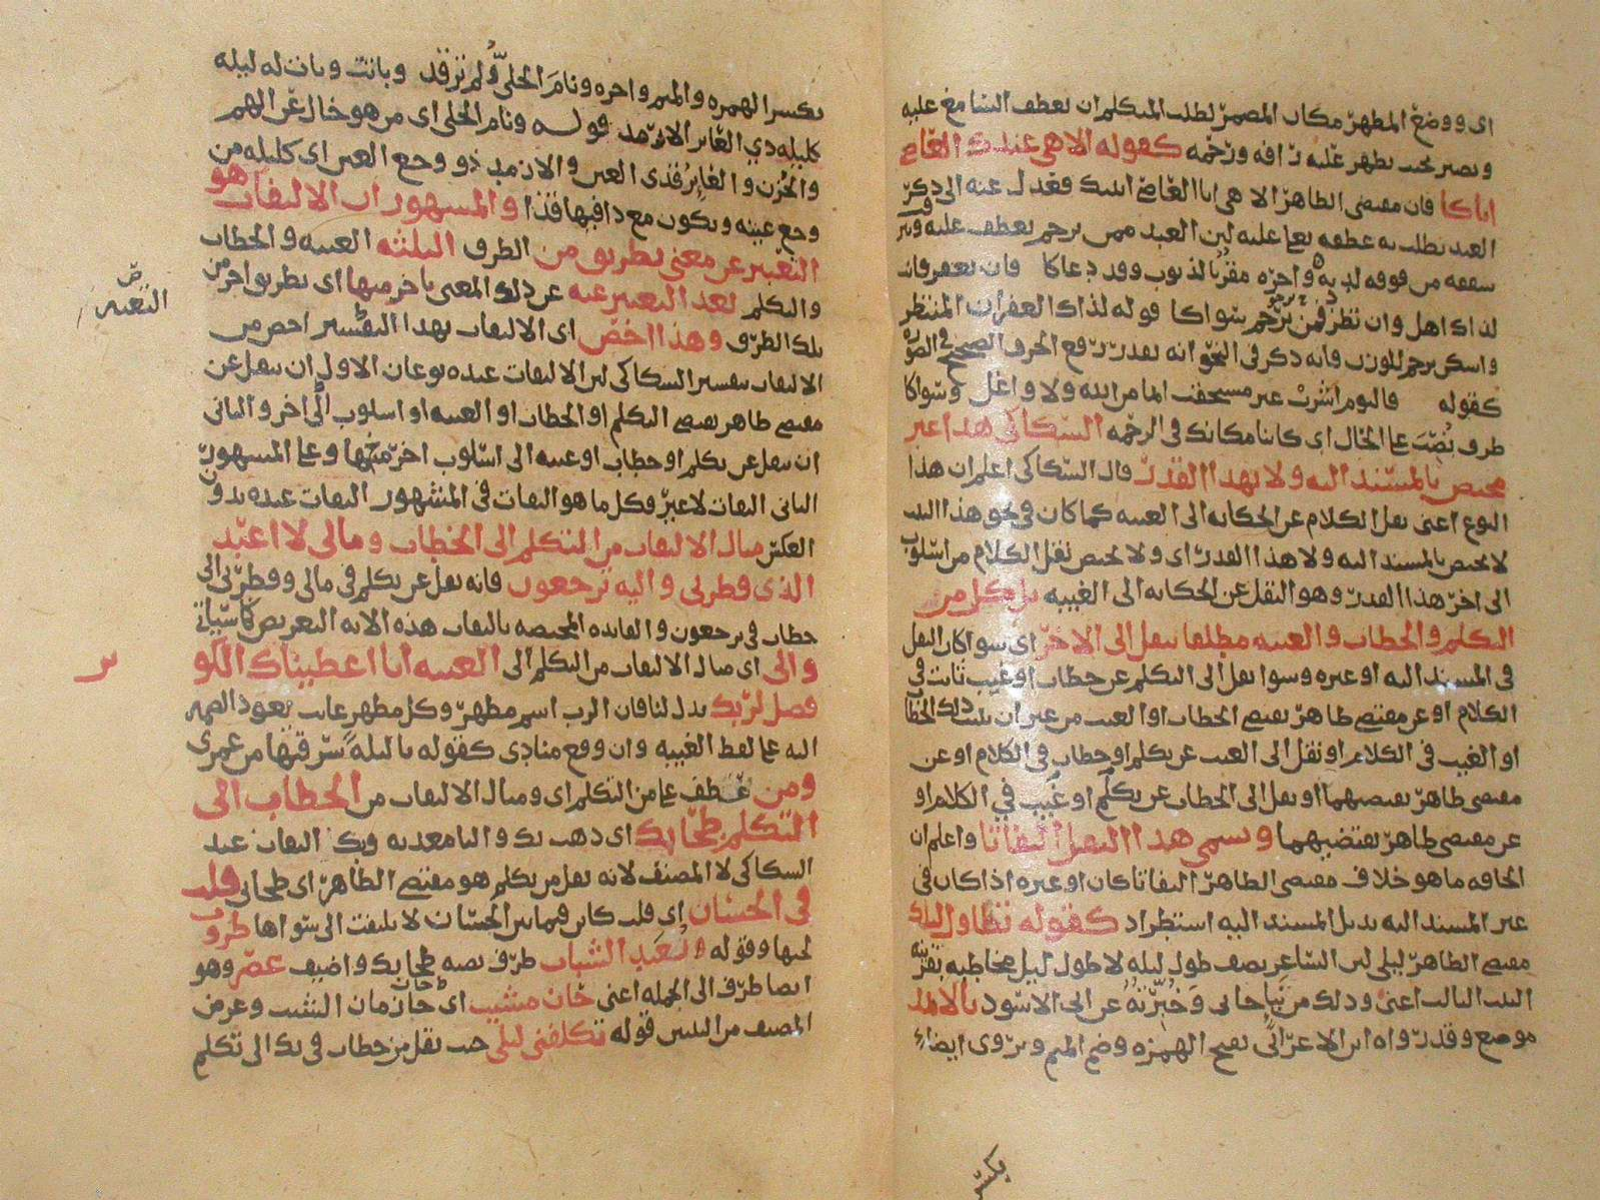 اى ووضع المظهر مكان المضمر لطلب المتكلم ان يعطف السامع عليه
ويصير بحيث يظهر عليه رافه ورحمه كقوله الاهى عبدك العاصى
اتاكا فان مقتضى الظاهر الاهى انا العاصى اتيتك فعدل عنه الى ذكر
العبد يطلب به عطفه
شفقه من فوقه لديه واحره مقرا بالذنوب وقد دعاكا فان تغفر فانت
لذاك اهل وان تطرد فمن يرحم سواكا قوله لذاك الغفران المنتظر
واسكن يرحم للوزن فانه ذكر فى النحو انه يقدر رفع الحرف الصحيح فى الضروره
كقوله فاليوم اشرب غير مستحقب اثما من الله ولا واغل وسواكا
ظرف نصب على الحال اى كائنا مكانك فى الرحمه السكاكى هذا غير
مختص بالمسند اليه ولا بهذا القدر قال السكاكى اعلم ان هذا
النوع اعنى نقل الكلام عن الحكايه الى الغيبه كما كان فى نحو هذا البيت
لا يختص بالمسند اليه ولا هذا القدر اى ولا يختص نقل الكلام من اسلوب
الى اخر هذا القدر وهو النقل عن الحكايه الى الغيبه بل كل من
التكلم والخطاب والغيبه مطلقا ينقل الى الاخر اى سوا كان النقل
فى المسند اليه او غيره وسوا نقل الى التكلم عن خطاب او غيب ثابت فى
الكلام او عن مقتضى ظاهر يقتضى الخطاب او الغيب من غير ان يثبت ذلك الخطاب
او الغيب فى الكلام او نقل الى الغيب عن تكلم او خطاب فى الكلام او عن
مقتضى ظاهر يقتضيهما او نقل الى الخطاب عن تكلم او غيب في الكلام او
عن مقتضى ظاهر يقتضيهما ويسمى هذا النقل التفاتا واعلم ان
الحاقه ما هو خلاف مقتضى الظاهر التفاتا كان او غيره اذا كان فى
غير المسند اليه بذيل المسند اليه استطراد كقوله تطاول ليلك
مقتضى الظاهر ليلى لان الشاعر يصف طول ليله لا طول ليل مخاطبه بقرينه
البيت الثالث اعنى وذلك من نبا جانى وخبرته عن ابى الاسود بالاثمد
موضع وقد رواه ابن الاعرابى بفتح الهمزه وضم الميم ويروى ايضا
بكسر الهمزه والميم واخره ونام الخلى ولم ترقد وبات وباتت له ليله
كليله ذي العائر الارمد قوله ونام الخلى اى من هو خال عن الهم
والحزن والعاير قذى العين والارمد ذو وجع العين اى كليله من
وجع عينه ويكون مع ذا فيها قذا والمشهور ان الالتفات هو
التعبير عن معنى بطريق من الطرق الثلثه الغيبه والخطاب
والتكلم بعد التعبير عنه عن ذلك المعنى باخر منها اى بطريق اخر من
تلك الطرق وهذا اخص اى الالتفات بهذا التفسير اخص من
الالتفات بتفسير السكاكى لان الالتفات عنده نوعان الاول ان ينقل عن
مقتضى ظاهر يقتضى التكلم او الخطاب او الغيبه او اسلوب الى اخر والثانى
ان ينقل عن تكلم او خطاب او غيبه الى اسلوب اخر منها وعلى المشهور
الثانى التفات لا غير وكل ما هو التفات فى المشهور التفات عنده بدون
العكس مثال الالتفات من التكلم الى الخطاب ومالى لا اعبد
الذى فطرنى واليه ترجعون فانه نقل عن تكلم فى مالى وفطرنى الى
خطاب فى ترجعون والفايده المختصه بالتفات هذه الايه التعريض كما سياتى
والى اى مثال الالتفات من التكلم الى الغيبه انا اعطيناك الكو
فصل لربك بدل لنا فان الرب اسم مظهر وكل مظهر غايب يعود الضمير
اليه على لفظ الغيبه وان وقع منادى كقوله يا ليله سرقتها من عمرى
ومن عطف على من التكلم اى ومثال الالتفات من الخطاب الى
التكلم طحا بك اى ذهب بك والبا معديه وبك التفات عند
السكاكى لا المصنف لانه نقل من تكلم هو مقتضى الظاهر اى طحا بى قلب
فى الحسان اى قلب كاين فيما بين الحسان لا يلتفت الى سواها طروب
لحبها وقوله بعيد الشباب ظرف نصبه طحا بك واضيف عصر وهو
ايضا ظرف الى الجمله اعنى حان مشيب اى حان زمان المشيب وغرض
المصنف من البيتين قوله تكلفنى ليلى حيث نقل من خطاب فى بك الى تكلم
التعبير